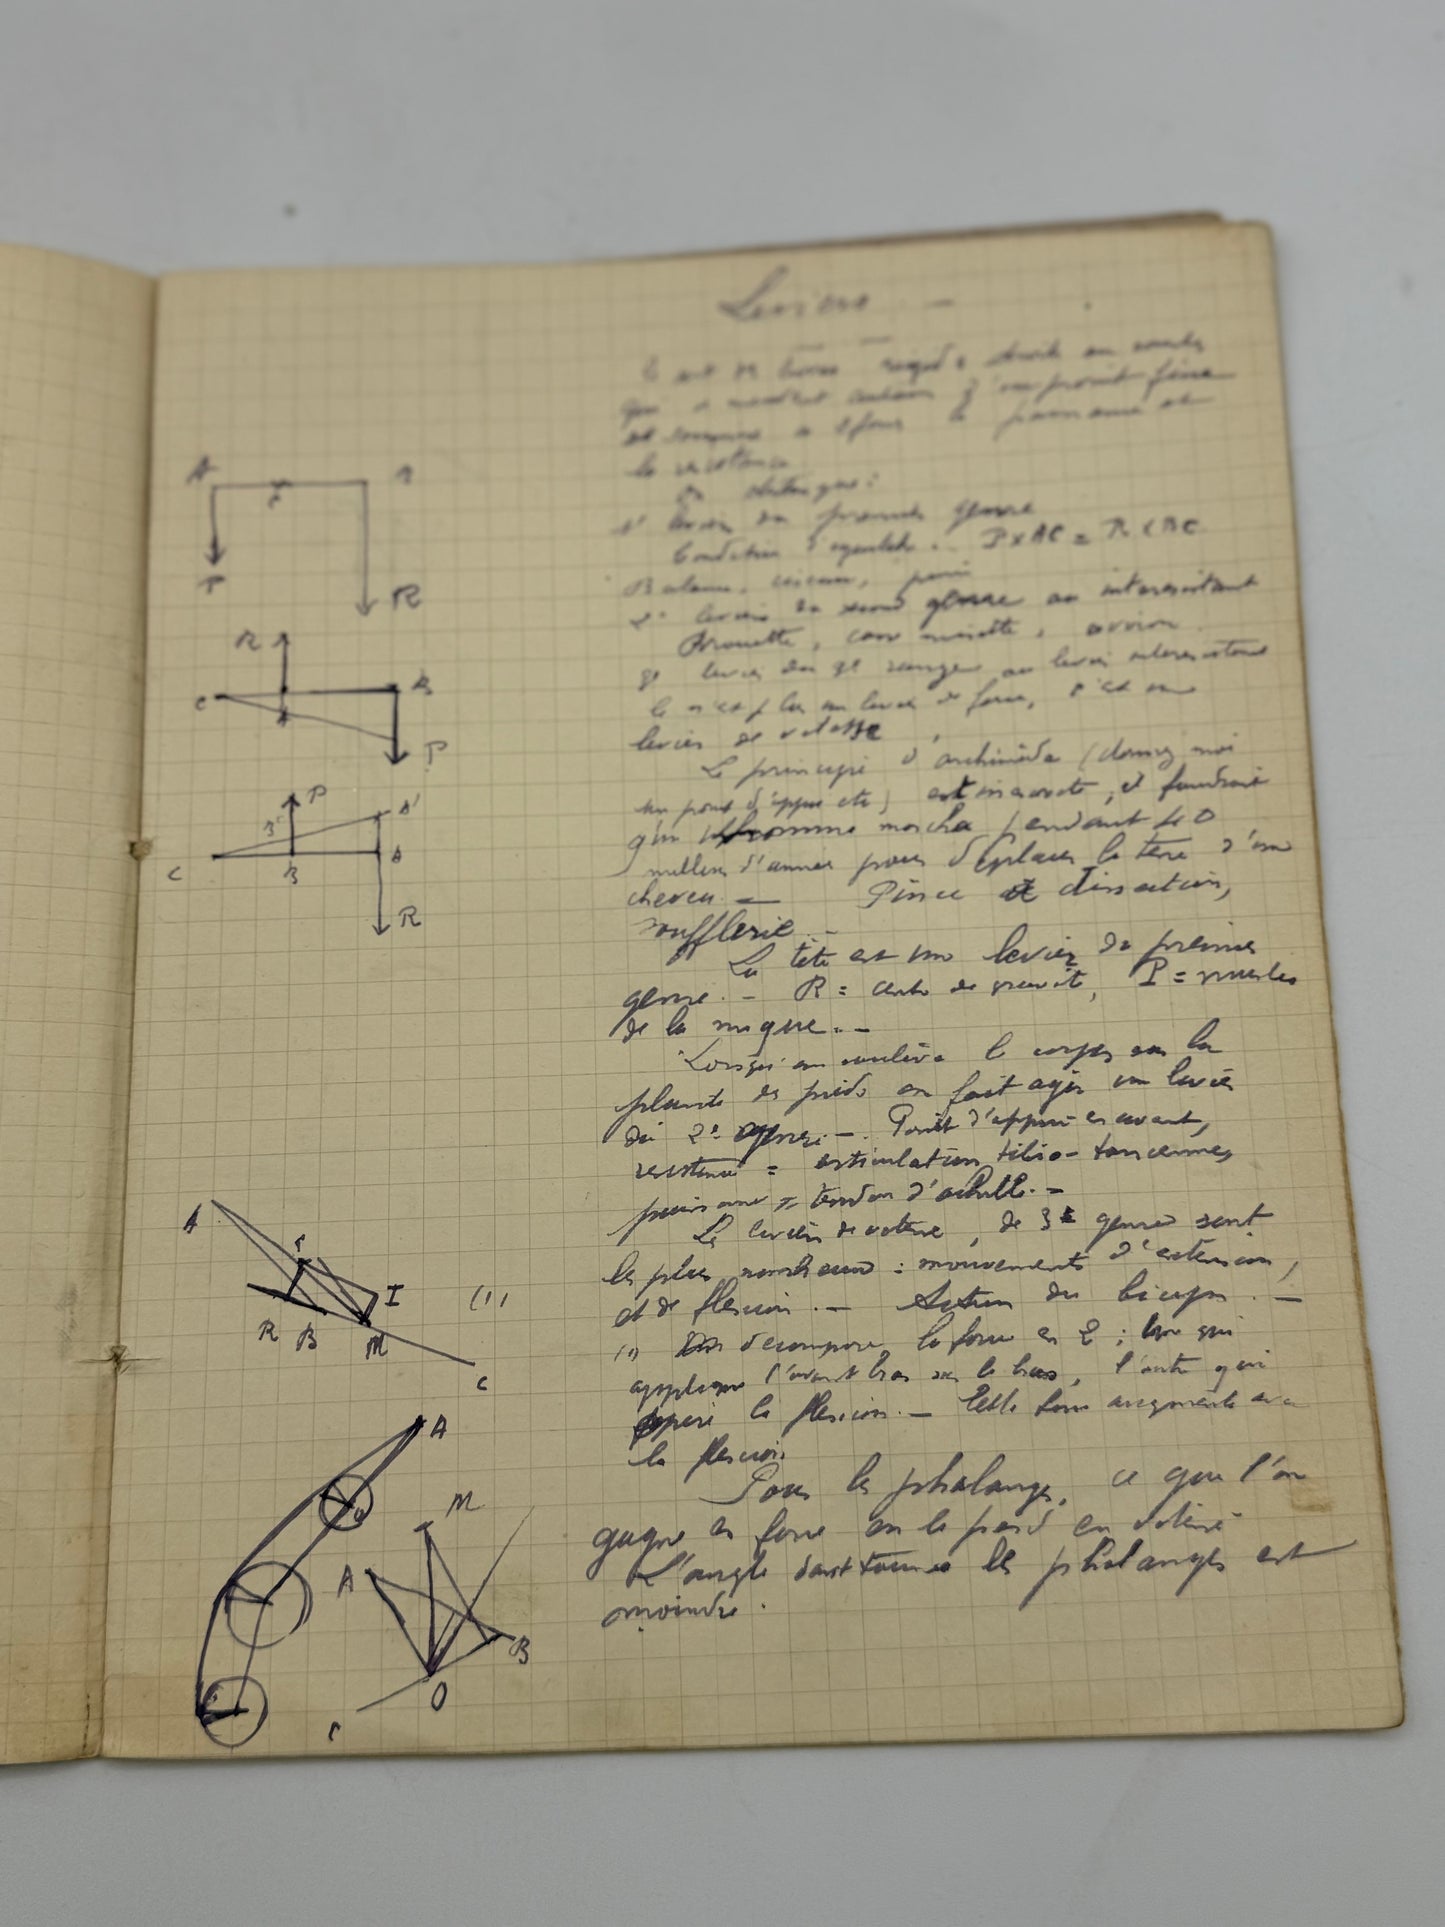 Leviers -
qui autour d'un point fixe
la resistance
On distingue :
1° levier du premier genre
Condition d'equilibre. P x AC = R x BC
Balance, ciseaux,
2° levier du second genre ou interresistant
Brouette, casse noisette, aviron
3° levier du 3e ou levier
Ce n'est plus un levier de force, c'est un
levier de vitesse
Le principe d'archimède (donnez moi
un point d'appui etc) est inexacte, il faudrait
qu'un homme marche pendant 40
millions d'années pour déplacer la terre d'un
cheveu. — Pince à dissection,
soufflerie -
La tête est un levier du premier
genre. - R = centre de gravité, P = muscles
de la nuque. -
Lorsqu'on soulève le corps sur la
plante des pieds on fait agir un levier
du 2e genre -. Point d'appui en avant,
résistance = articulation tibio-tarsienne,
puissance = tendon d'achille. -
Les leviers de vitesse, de 3e genre sont
les plus nombreux : mouvements d'extension,
et de flexion. - Action du biceps. -
(1) decompose la force en 2 ; une qui
applique l'avant bras sur le bras, l'autre qui
opère la flexion. - Cette force augmente avec
la flexion
Pour les phalanges, ce que l'on
gagne en force on le perd en vitesse
L'angle dont tourne les phalanges est
moindre.
A
P
R
R
C
A
B
P
P
A'
B'
C
B
A
R
A
I
(1)
R B M
C
A
M
A
B
O
C